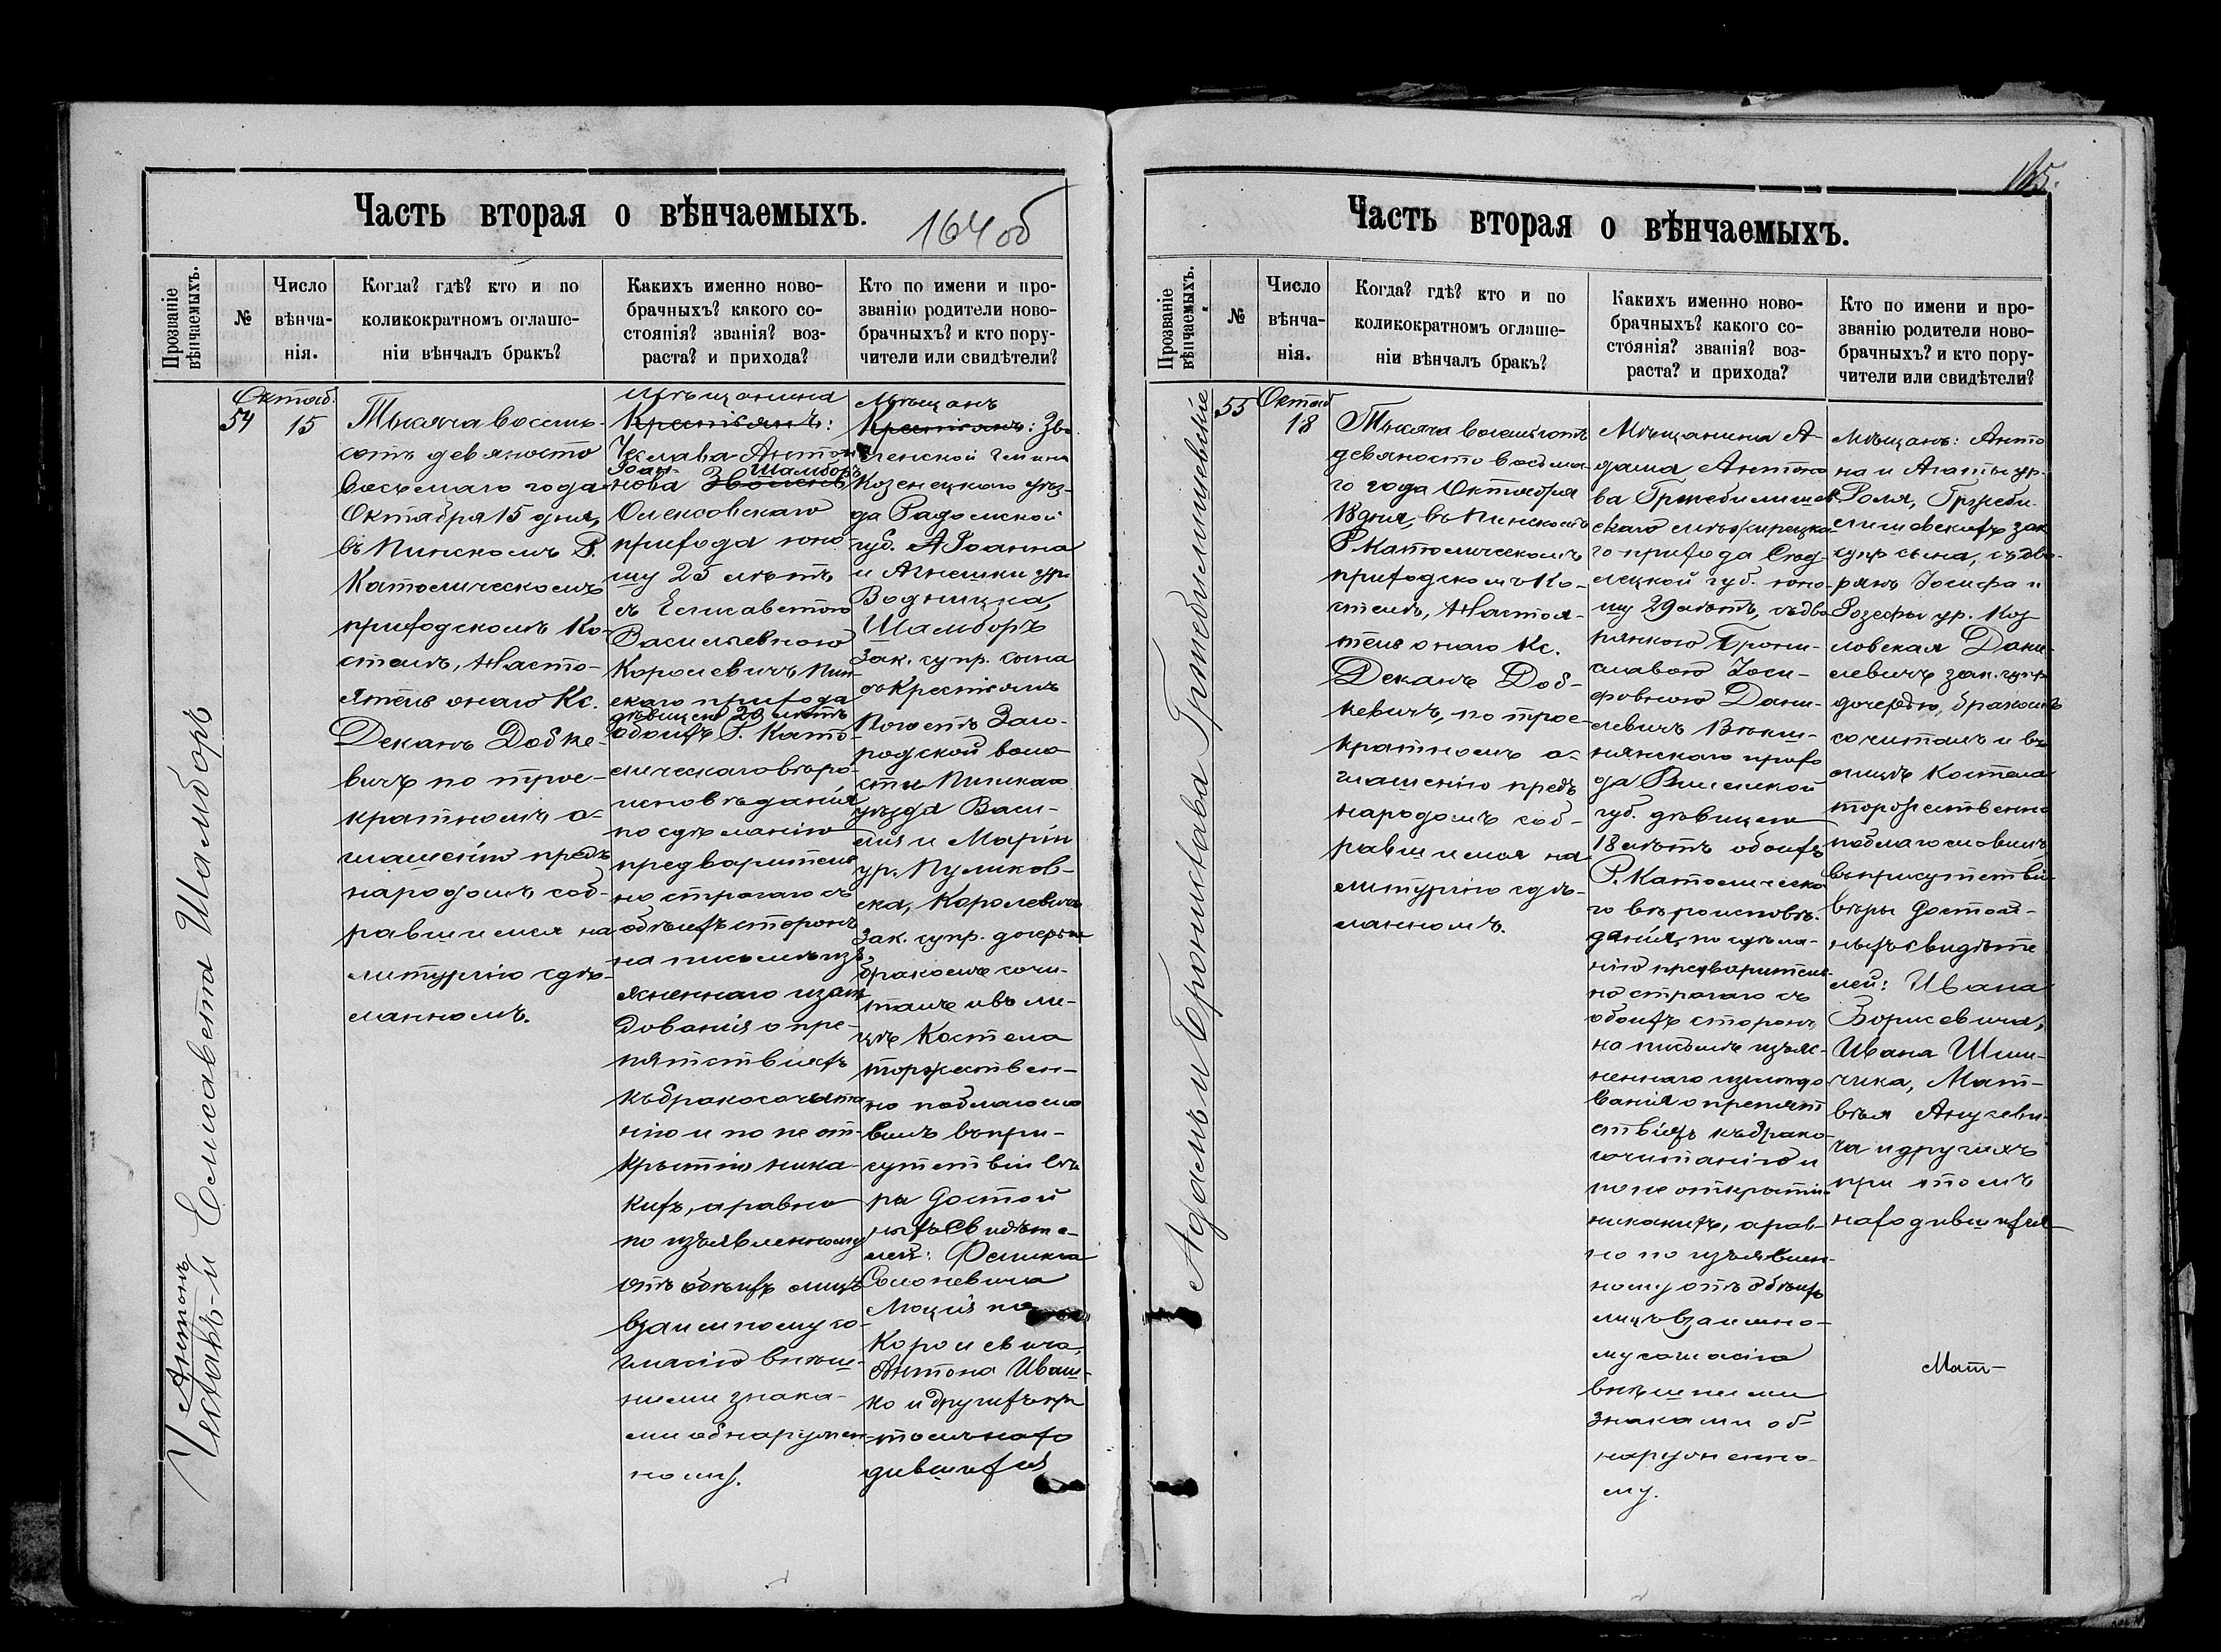 Часть вторая о вѣнчаемыхъ.
164 об
Прозваніе
вѣнчаемыхъ.
№
Число
вѣнча-
нія.
Когда? гдѣ? кто и по
коликократномъ оглаше-
ніи вѣнчалъ бракъ?
Какихъ именно ново-
брачныхъ? какого со-
стоянія? званія? воз-
раста? и прихода?
Кто по имени и про-
званію родители ново-
брачныхъ? и кто пору-
чители или свидѣтели?
Антонъ
Чеславъ и Елисавета Шамборъ
Октяб.
54
15
Тысяча восемь-
сотъ девяносто
восьмаго года
Октября 15 дня,
въ Пинскомъ Р.
Католическомъ
приходскомъ Ко-
стелѣ, Насто-
ятель онаго Кс.
Деканъ Добке-
вичъ по трое-
кратномъ о-
глашеніи предъ
народомъ соб-
равшимся на
литургію сдѣ-
ланномъ.
Мѣщанина
Крестьянъ:
Чеслава Антон
Іоан- Шамборъ
нова
Олексовскаго
прихода юно
шу 25 лѣтъ
съ Елисаветою
Васильевною
Королевичъ Пин-
скаго прихода
дѣвицею 20 лѣтъ
обоихъ Р. Като-
лическаго вѣро-
исповѣданія
по сдѣланію
предваритель
но строгаго съ
обѣихъ сторонъ
на письмѣ изъ
ясненнаго излѣ
дованія о пре-
пятствіяхъ
къ бракосочета
нію и по не от-
крытію ника-
кихъ, а равно
по изъявленному
отъ обѣихъ лицъ
взаимному со-
гласію внѣш-
ними знака-
ми обнаружен
ному.
Мѣщанъ
Крестьянъ: Зво
ленской гмины
Козенецкаго уѣз-
да Радомской
губ. Іоанна
и Агнешки ур.
Водницка,
Шамборъ
зак. супр. сына
съ Крестьянъ
Погостъ Заго-
родской воло
сти Пинскаго
уѣзда Васи-
лія и Маріи
ур. Пуликов-
ска, Королевичъ
зак. супр. дочерью
бракомъ сочи-
талъ и въ ли-
цѣ Костела
торжествен-
но поблагосло
вилъ въ при-
сутствіи вѣ
ры достой
ныхъ свидѣте-
лей: Феликса
Солоневича
Королевича,
Антона Иваш-
ко и другихъ при
томъ нахо
дившихся
Часть вторая о вѣнчаемыхъ.
165.
Прозваніе
вѣнчаемыхъ.
№
Число
вѣнча-
нія.
Когда? гдѣ? кто и по
коликократномъ оглаше-
ніи вѣнчалъ бракъ?
Какихъ именно ново-
брачныхъ? какого со-
стоянія? званія? воз-
раста? и прихода?
Кто по имени и про-
званію родители ново-
брачныхъ? и кто пору-
чители или свидѣтели?
Адамъ и Бронислава Гржебилишевскіе
55
Октяб
18
Тысяча восемьсотъ
девяносто восьма-
го года Октября
18 дня, въ Пинскомъ
Р. Католическомъ
приходскомъ Ко-
стелѣ, Настоя-
тель онаго Кс.
Деканъ Доб-
кевичъ, по трое-
кратномъ о-
глашеніи предъ
народомъ соб-
равшимся на
литургію сдѣ-
ланномъ.
Мѣщанина А-
дама Антоно
ва Гржебилишев
скаго
го прихода Сѣд-
лецкой губ. юно-
шу 29 лѣтъ, съ дво
рянкою Брони-
славою Іоси-
фовною Дани-
левичъ
нянскаго прихо
да Виленской
губ. дѣвицею
18 лѣтъ обоихъ
Р. Католическа
го вѣроисповѣ-
данія, по сдѣла-
нію предваритель-
но строгаго съ
обоихъ сторонъ
на письмѣ изъяс-
неннаго излѣдо
ванія о препят
ствіяхъ къ брако-
сочитанію и
по не открытію
никакихъ, а рав-
но по изъявлен-
ному отъ обѣихъ
лицъ взаимно-
му согласію
внѣшними
знаками об-
наруженно-
му.
Мѣщанъ: Анто
на и Агаты ур.
Роля, Гржеби-
лишевскихъ зак
супр сына, съ дво-
рянъ Іосифа и
Іозефы ур. Коз
ловская Дани-
левичъ зак. супр
дочерью, бракомъ
сочиталъ и въ
лицѣ Костела
торжественно
поблагословилъ
въ присутствіи
вѣры достой-
ныхъ свидѣте
лей: Ивана
Борисевича,
Ивана Шим-
чика, Мат-
вѣя Анцеви-
ча и другихъ
при томъ
находившихся
Мат-